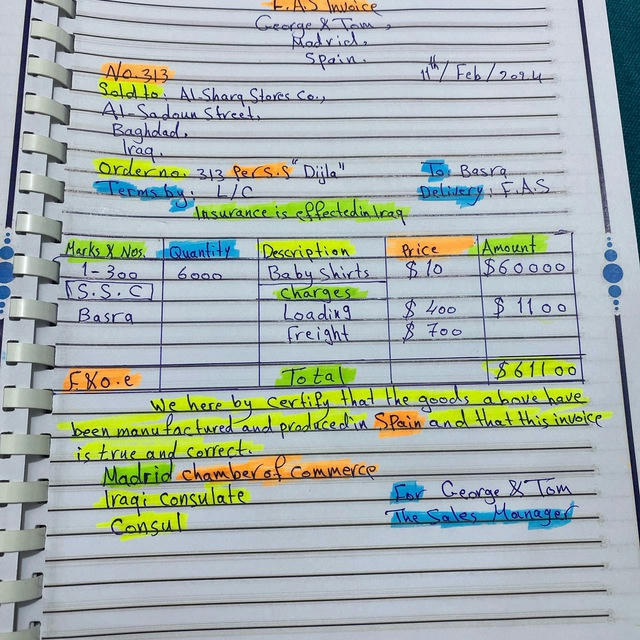 F.A.S Invoice
George & Tom,
Madrid,
Spain.
No. 313
11th / Feb / 2024
Sold to: Al Sharq Stores Co.,
Al-Sadoun Street,
Baghdad,
Iraq.
Order no: 313 Per S.S "Dijla" To: Basra
Terms by: L/C Delivery: F.A.S
Insurance is effected in Iraq
Marks & Nos. Quantity Description Price Amount
1-300 6000 Baby Shirts $10 $60000
S.S.C charges
Basra Loading $400 $1100
freight $700
F.&o.e Total $61100
We here by certify that the goods above have
been manufactured and produced in Spain and that this invoice
is true and correct.
Madrid chamber of commerce
Iraqi consulate For George & Tom
Consul The Sales Manager